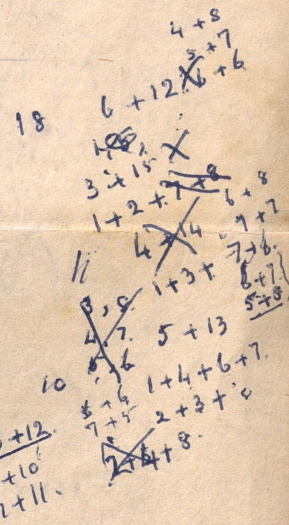 4 + 8
5 + 7
6 + 6
6 + 12
18
3 + 15
1 + 2 + 7 + 8
6 + 8
4 + 14
7 + 7
7 + 6
11
1 + 3 +
6 + 7
5 + 8
3, 8
4, 7
5 + 13
5, 6
10
1 + 4 + 6 + 7
5 + 6
7 + 5
2 + 3 +
+ 12
2 + 4 + 8
+ 10
+ 11